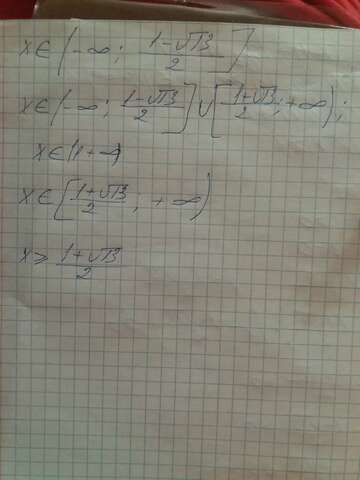 x ∈ (-∞; (1-√13)/2]
x ∈ (-∞; (1-√13)/2] ∪ [(1+√13)/2; +∞);
x ∈ (1 +∞)
x ∈ [(1+√13)/2; +∞)
x ⩾ (1+√13)/2